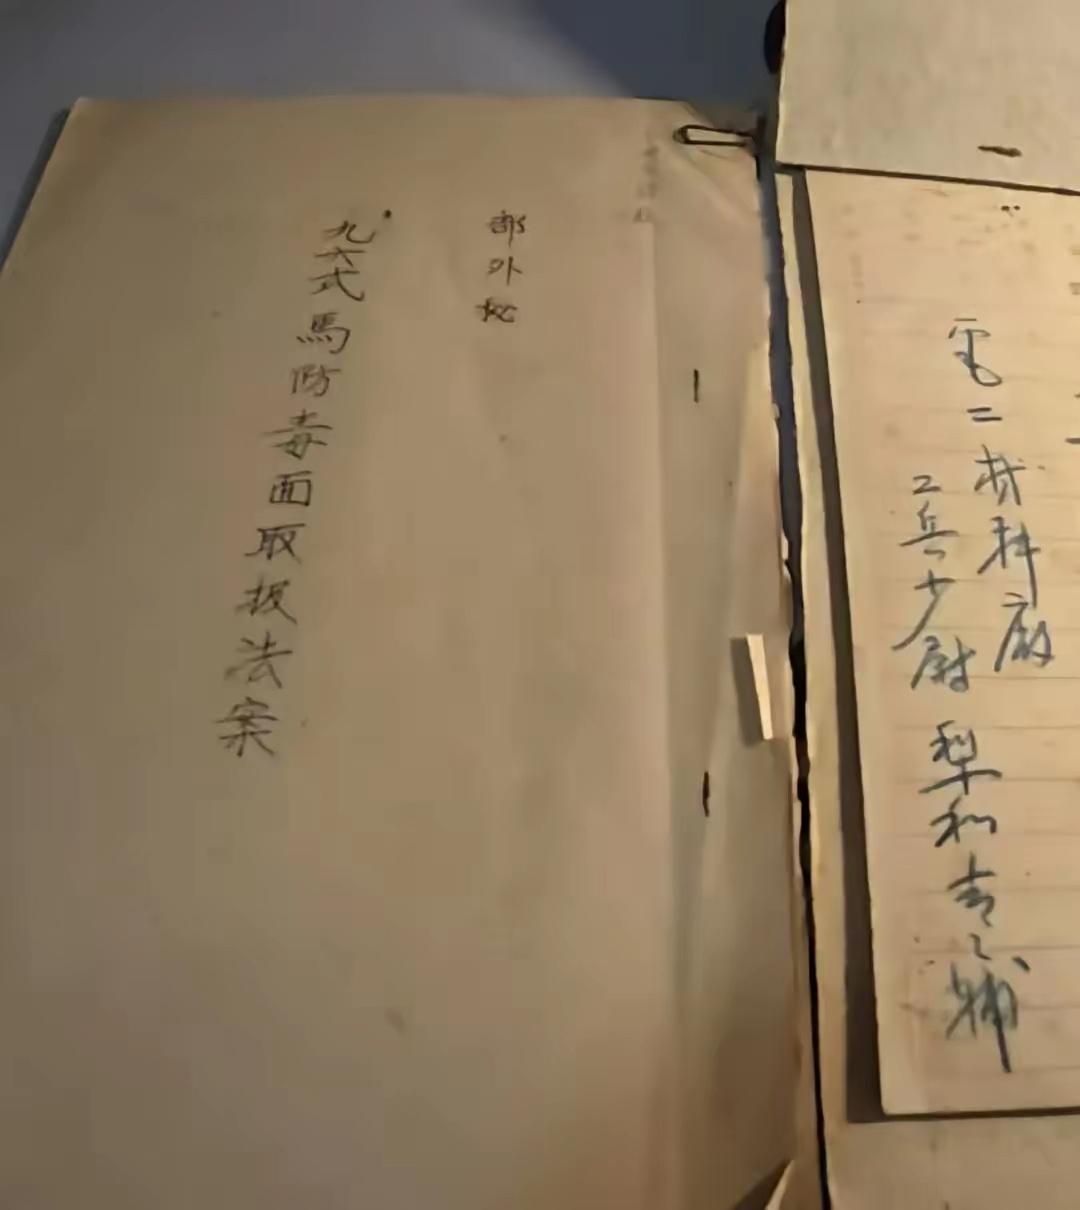 部外秘
九六式馬防毒面取扱法案
電二材料廠
工兵少尉 梨和吉之輔